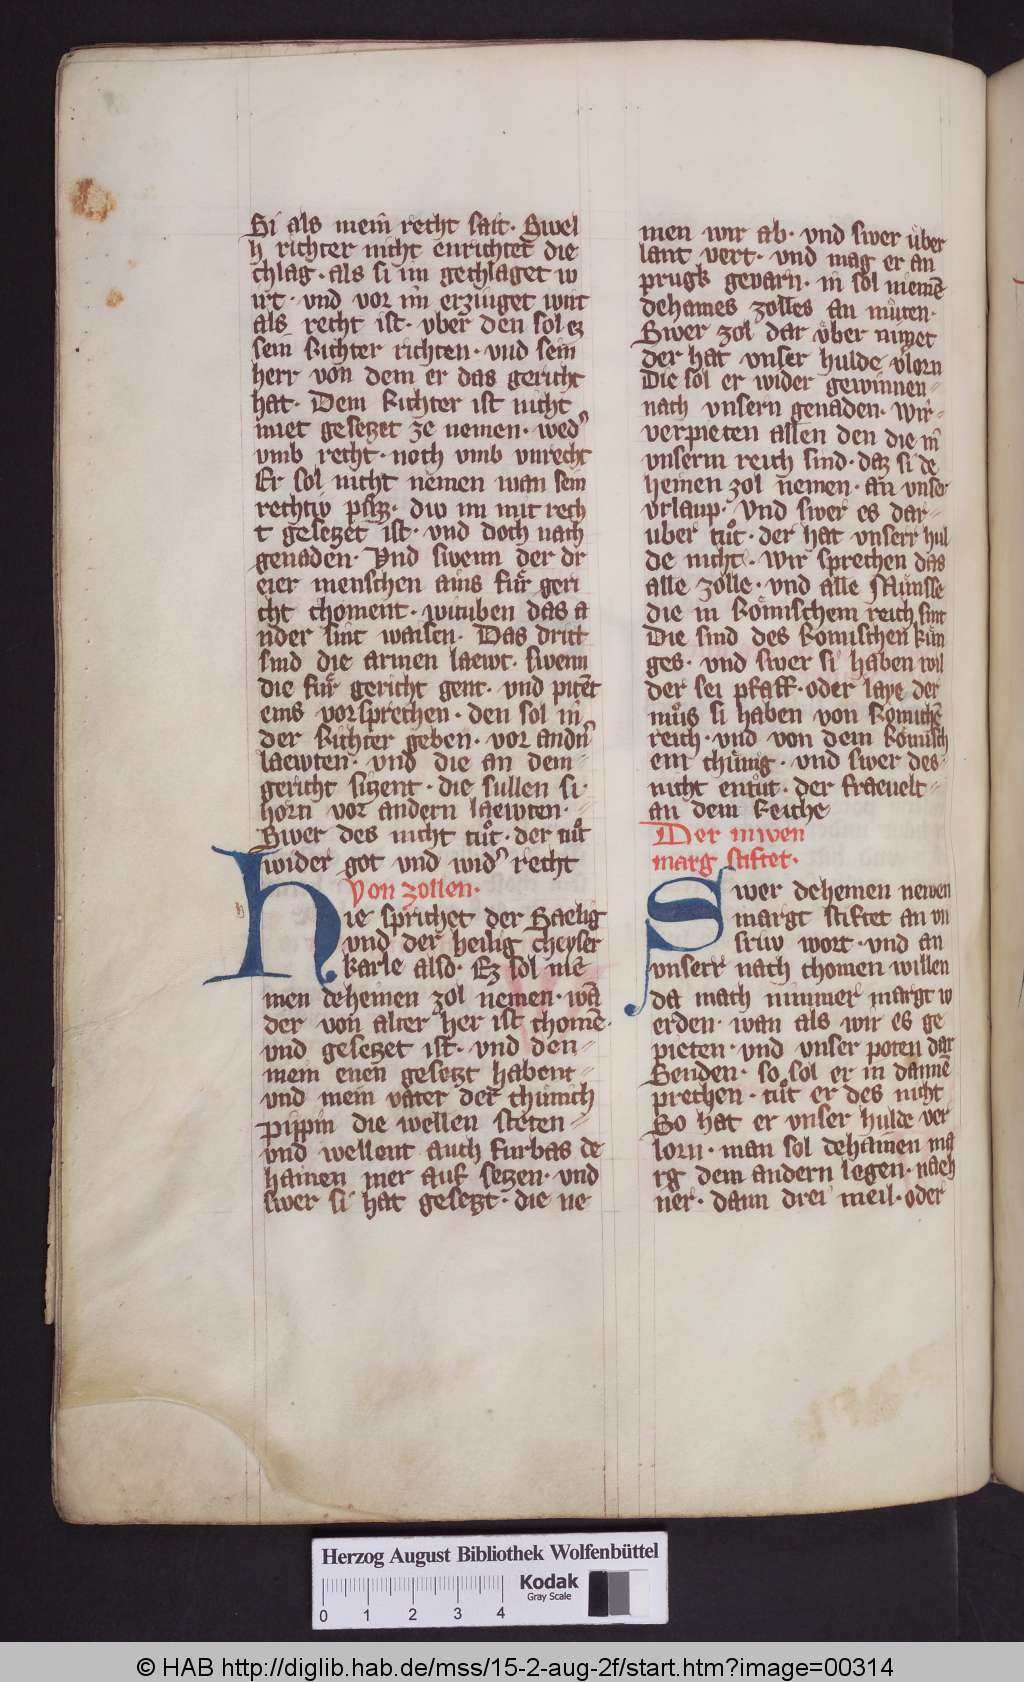 Si als mein recht sait · Swel
h richter nicht enrichtet die
chlag · als si im gechlaget w
irt · vnd vor im erziuget wirt
als recht ist · vber den sol ez
sein Richter richten · vnd sein
herr von dem er das gericht
hat · Dem Richter ist nicht
miet gesetzet ze nemen · wed᾽
vmb recht · noch vmb vnrecht
Er sol nicht nemen wan sein
rechtiv · div im mit rech
t gesetzet ist · vnd doch nach
genaden · Vnd swenn der dr
eier menschen ains fuͤr geri
cht choment · wituben das a
nder sint waisen · Das dritt
sind die armen laewt · swenn
die fuͤr gericht gent · vnd pitēt
eins vorsprechen · den sol in
der Richter geben · vor andn᾽
laewten · vnd die an dem=
gericht sitzent · die sullen si
horn vor andern laewten · =
Swer des nicht tuͦt · der tuͦt
wider got vnd wid᾽ recht
Von zollen ·
Hie sprichet der Saelig
vnd der heilig cheyser
Karle also · Ez sol nie
men deheinen zol nemen · wā
der von alter her ist chomē ·
vnd gesetzet ist · vnd den=
mein enen gesetzt habent=
vnd mein vater der chunich
Pippin die wellen steten=
vnd wellent auch furbas de
hainen mer auf setzen · vnd
swer si hat gesetzt · die ne
men wir ab · vnd swer uͤber
lant vert · vnd mag er an
prugk gevarn · in sol niemē
dehaines zolles an muͤten ·
Swer zol dar uͤber nimet
der hat vnser hulde vlorn
Die sol er wider gewinnen=
nach vnsern genaden · Wir=
verpieten allen den die in
vnserm reich sind · daz si de
heinen zol nemen · an vnser
vrlaup · Vnd swer es dar=
uber tuͦt · der hat vnserr hul
de nicht · Wir sprechen das
alle zoͤlle · vnd alle Muͤnsse
die in Roͤmischem reich sint
Die sind des Romischen kuͤn
ges · vnd swer si haben wil
der sei pfaff · oder laye der
muͦs si haben von Romichē
reich · vnd von dem Romisch
em chuͤnig · vnd swer des=
nicht entuͦt · der fraevelt=
an dem Reiche
Der niwen
marg stiftet ·
Swer deheinen newen
margt stiftet an vn
sriw wort · vnd an
vnserr nach chomen willen
da mach nimmer margt w
erden · wan als wir es ge
pieten · vnd vnser poten dar
Senden · so sol er in dannē
prechen · tuͦt er des nicht
So hat er vnser hulde ver
lorn · man sol dehainen ma
rg dem andern legen · nach
ner · dann drei meil · oder
Herzog August Bibliothek Wolfenbüttel
Kodak
Gray Scale
0 1 2 3 4
© HAB http://diglib.hab.de/mss/15-2-aug-2f/start.htm?image=00314